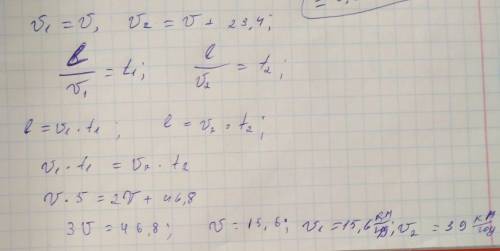 v₁ = v, v₂ = v + 23,4;
l/v₁ = t₁; l/v₂ = t₂;
l = v₁ · t₁; l = v₂ · t₂;
v₁ · t₁ = v₂ · t₂
v · 5 = 2v + 46,8
3v = 46,8; v = 15,6; v₁ = 15,6 км/час; v₂ = 39 км/час